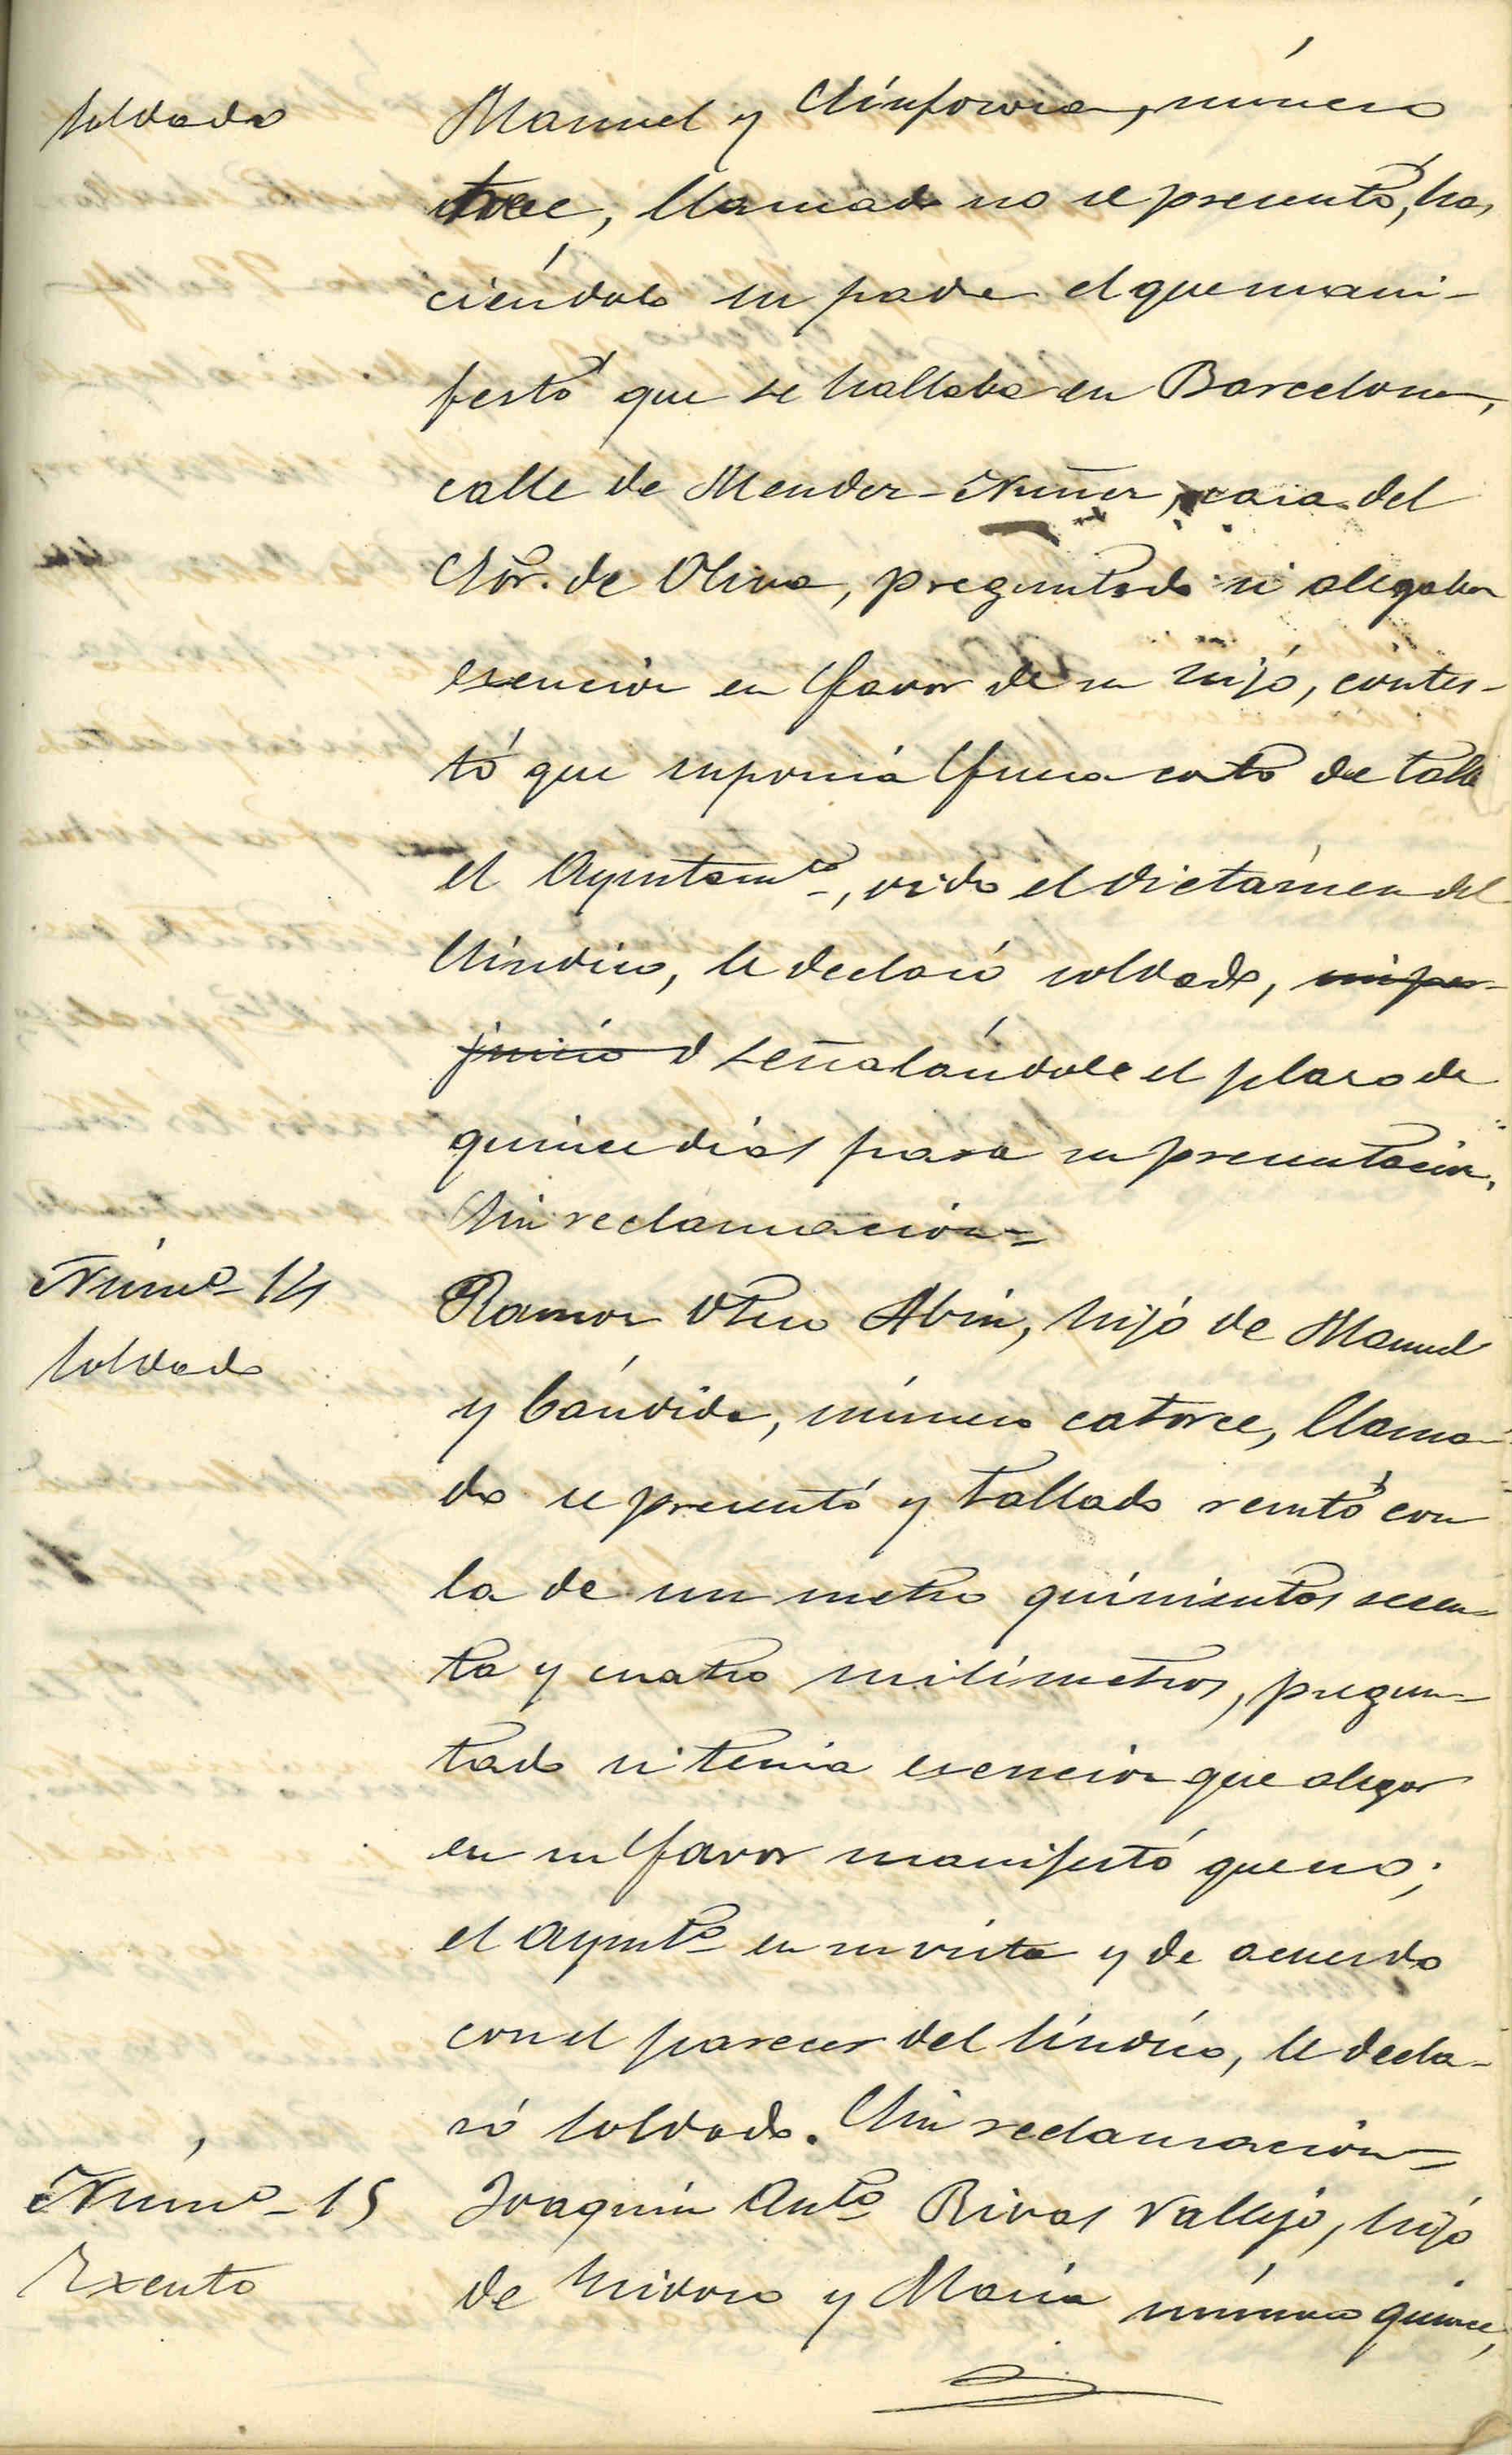 Soldado
Manuel y Sinforosa, número
trece, llamado no se presentó, ha,
ciéndolo su padre el que mani-
festó que se hallaba en Barcelona,
calle de Mendez-Nuñez, casa del
Sór. de Oliva, preguntado si alegaba
esencion en favor de su hijo, contes-
tó que suponiá fuera corto de talla
el Ayuntamto, oido el dictámen del
Síndico, le declaró soldado, sin per-
juicio d señalándole el plazo de
quince dias para su presentacion.
Sin reclamacion=
Númo 14
Soldado
Ramon Otero Abin, hijo de Manuel
y Cándida, número catorce, llama-
do se presentó y tallado resultó con
la de un metro quinientos sesen-
ta y cuatro milímetros, pregun-
tado si tenia esencion que alegar
en su favor manifestó que no;
el Ayuntº en su vista y de acuerdo
con el parecer del Síndico, le decla-
ró soldado. Sin reclamacion=
Númo 15
Exento
Joaquin Antº Rivas Vallejo, hijo
de Isidoro y Maria número quince,